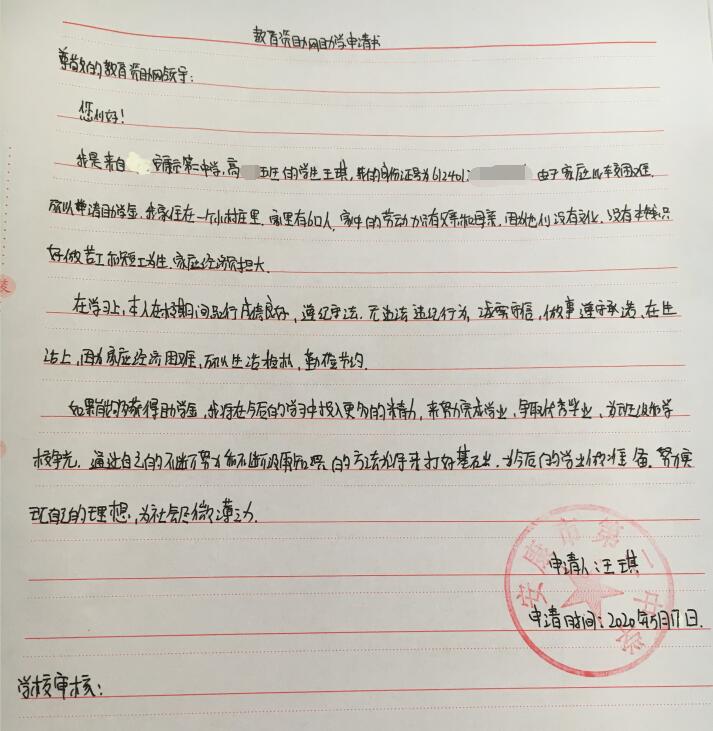 教育资助网助学申请书
尊敬的教育资助网领导:
您们好!
我是来自 安康市第二中学,高 五班的学生王琪,我的身份证号为612401 由于家庭比较困难.
所以申请助学金.我家住在一个小村庄里.家里有6口人,家中的劳动力只有父亲和母亲,因为他们没有文化,没有本钱只
好做苦工和短工为生.家庭经济负担大.
在学习上,本人在校期间品行成绩良好,遵纪守法.无违法违纪行为,诚实守信,做事遵守承诺,在生
活上,因为家庭经济困难,所以生活朴素,勤俭节约.
如果能够获得助学金,我将在今后的学习中投入更多的精力,来努力完成学业,争取优秀毕业,为班级和学
校争光.通过自己的不断努力和不断 的方法为将来打好基础.为今后的学业做准备.努力实
现自己的理想,为社会尽微薄之力.
申请人:王琪
申请时间:2020年5月17日.
安康市第二中学
学校审核: